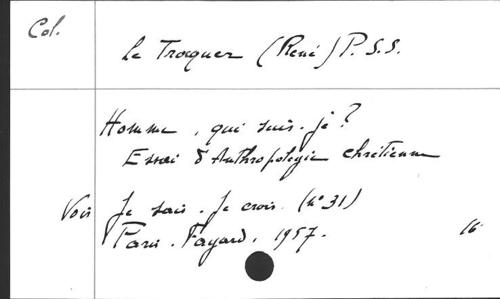 Col.
Le Trocquer (René) P.S.S.
Homme, qui suis-je?
Essai d'Anthropologie chrétienne
Voir Je sais. Je crois. (n° 31)
Paris. Fayard. 1957. 16